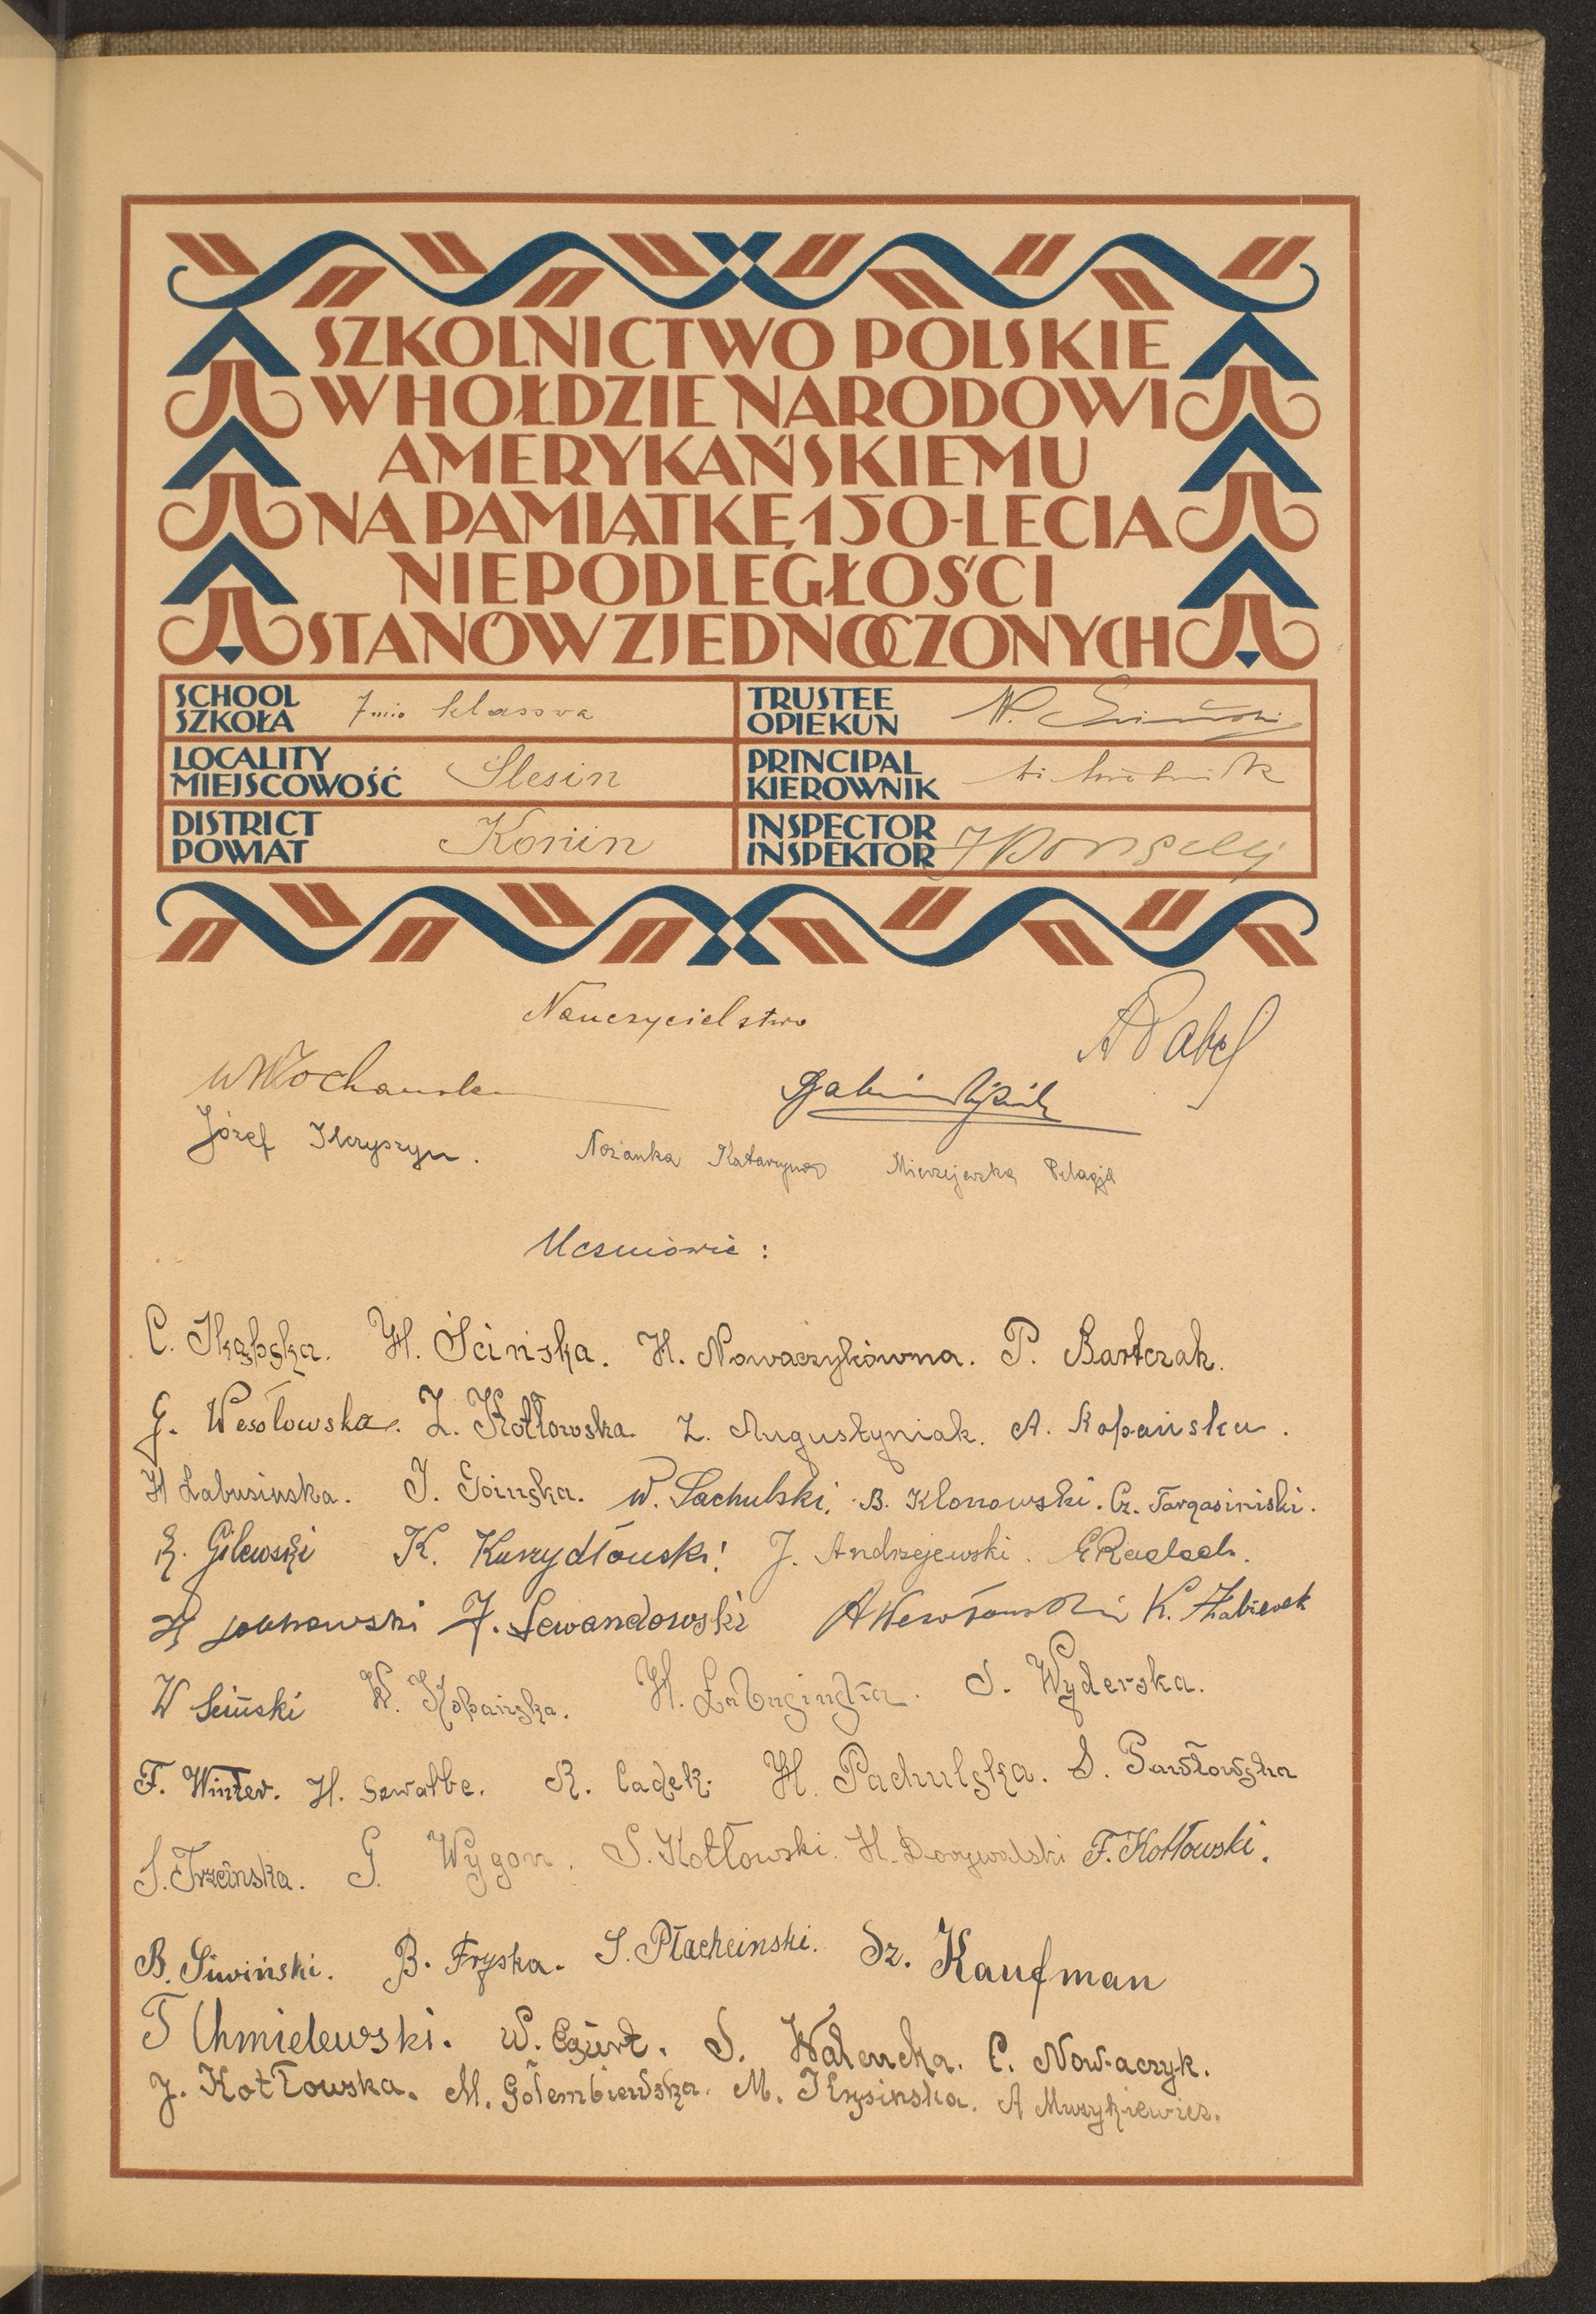 SZKOLNICTWO POLSKIE
W HOŁDZIE NARODOWI
AMERYKAŃSKIEMU
NA PAMIĄTKĘ 150-LECIA
NIEPODLEGŁOŚCI
STANÓW ZJEDNOCZONYCH
SCHOOL
SZKOŁA
7mio klasowa
TRUSTEE
OPIEKUN
LOCALITY
MIEJSCOWOŚĆ
Ślesin
PRINCIPAL
KIEROWNIK
DISTRICT
POWIAT
Konin
INSPECTOR
INSPEKTOR
Nauczycielstwo
Józef
Nożanka Katarzyna Mierzejewska Pelagja
Uczniowie :
C. Skąpska. H. Ścińska. H. Nowaczykówna. P. Bartczak.
G. Wesołowska. Z. Kotłowska. Z. Augustyniak. A. Kopańska.
H Łabusińska. W. Pachulski. B. Klonowski. Cz. Targasiński.
Gilewski K. Kurzydłowski J. Andrzejewski.
J. Lewandowski K. Żabierek
W Siński W. Kopańska. H. Łabusińska. S. Wyderska.
F. Winter. H. Szwalbe. R. Cadek. H. Pachulska. S. Pawłowska
S. Trzcińska. G. Wygon. S. Kotłowski. H. Dorywalski F. Kotłowski.
B. Siwiński. B. Fryska. S. Płacheinski. Sz. Kaufman
T Chmielewski. W. S. Walencka. C. Nowaczyk.
J. Kotłowska. M. Gołembiewska. M. A Muzykiewicz.